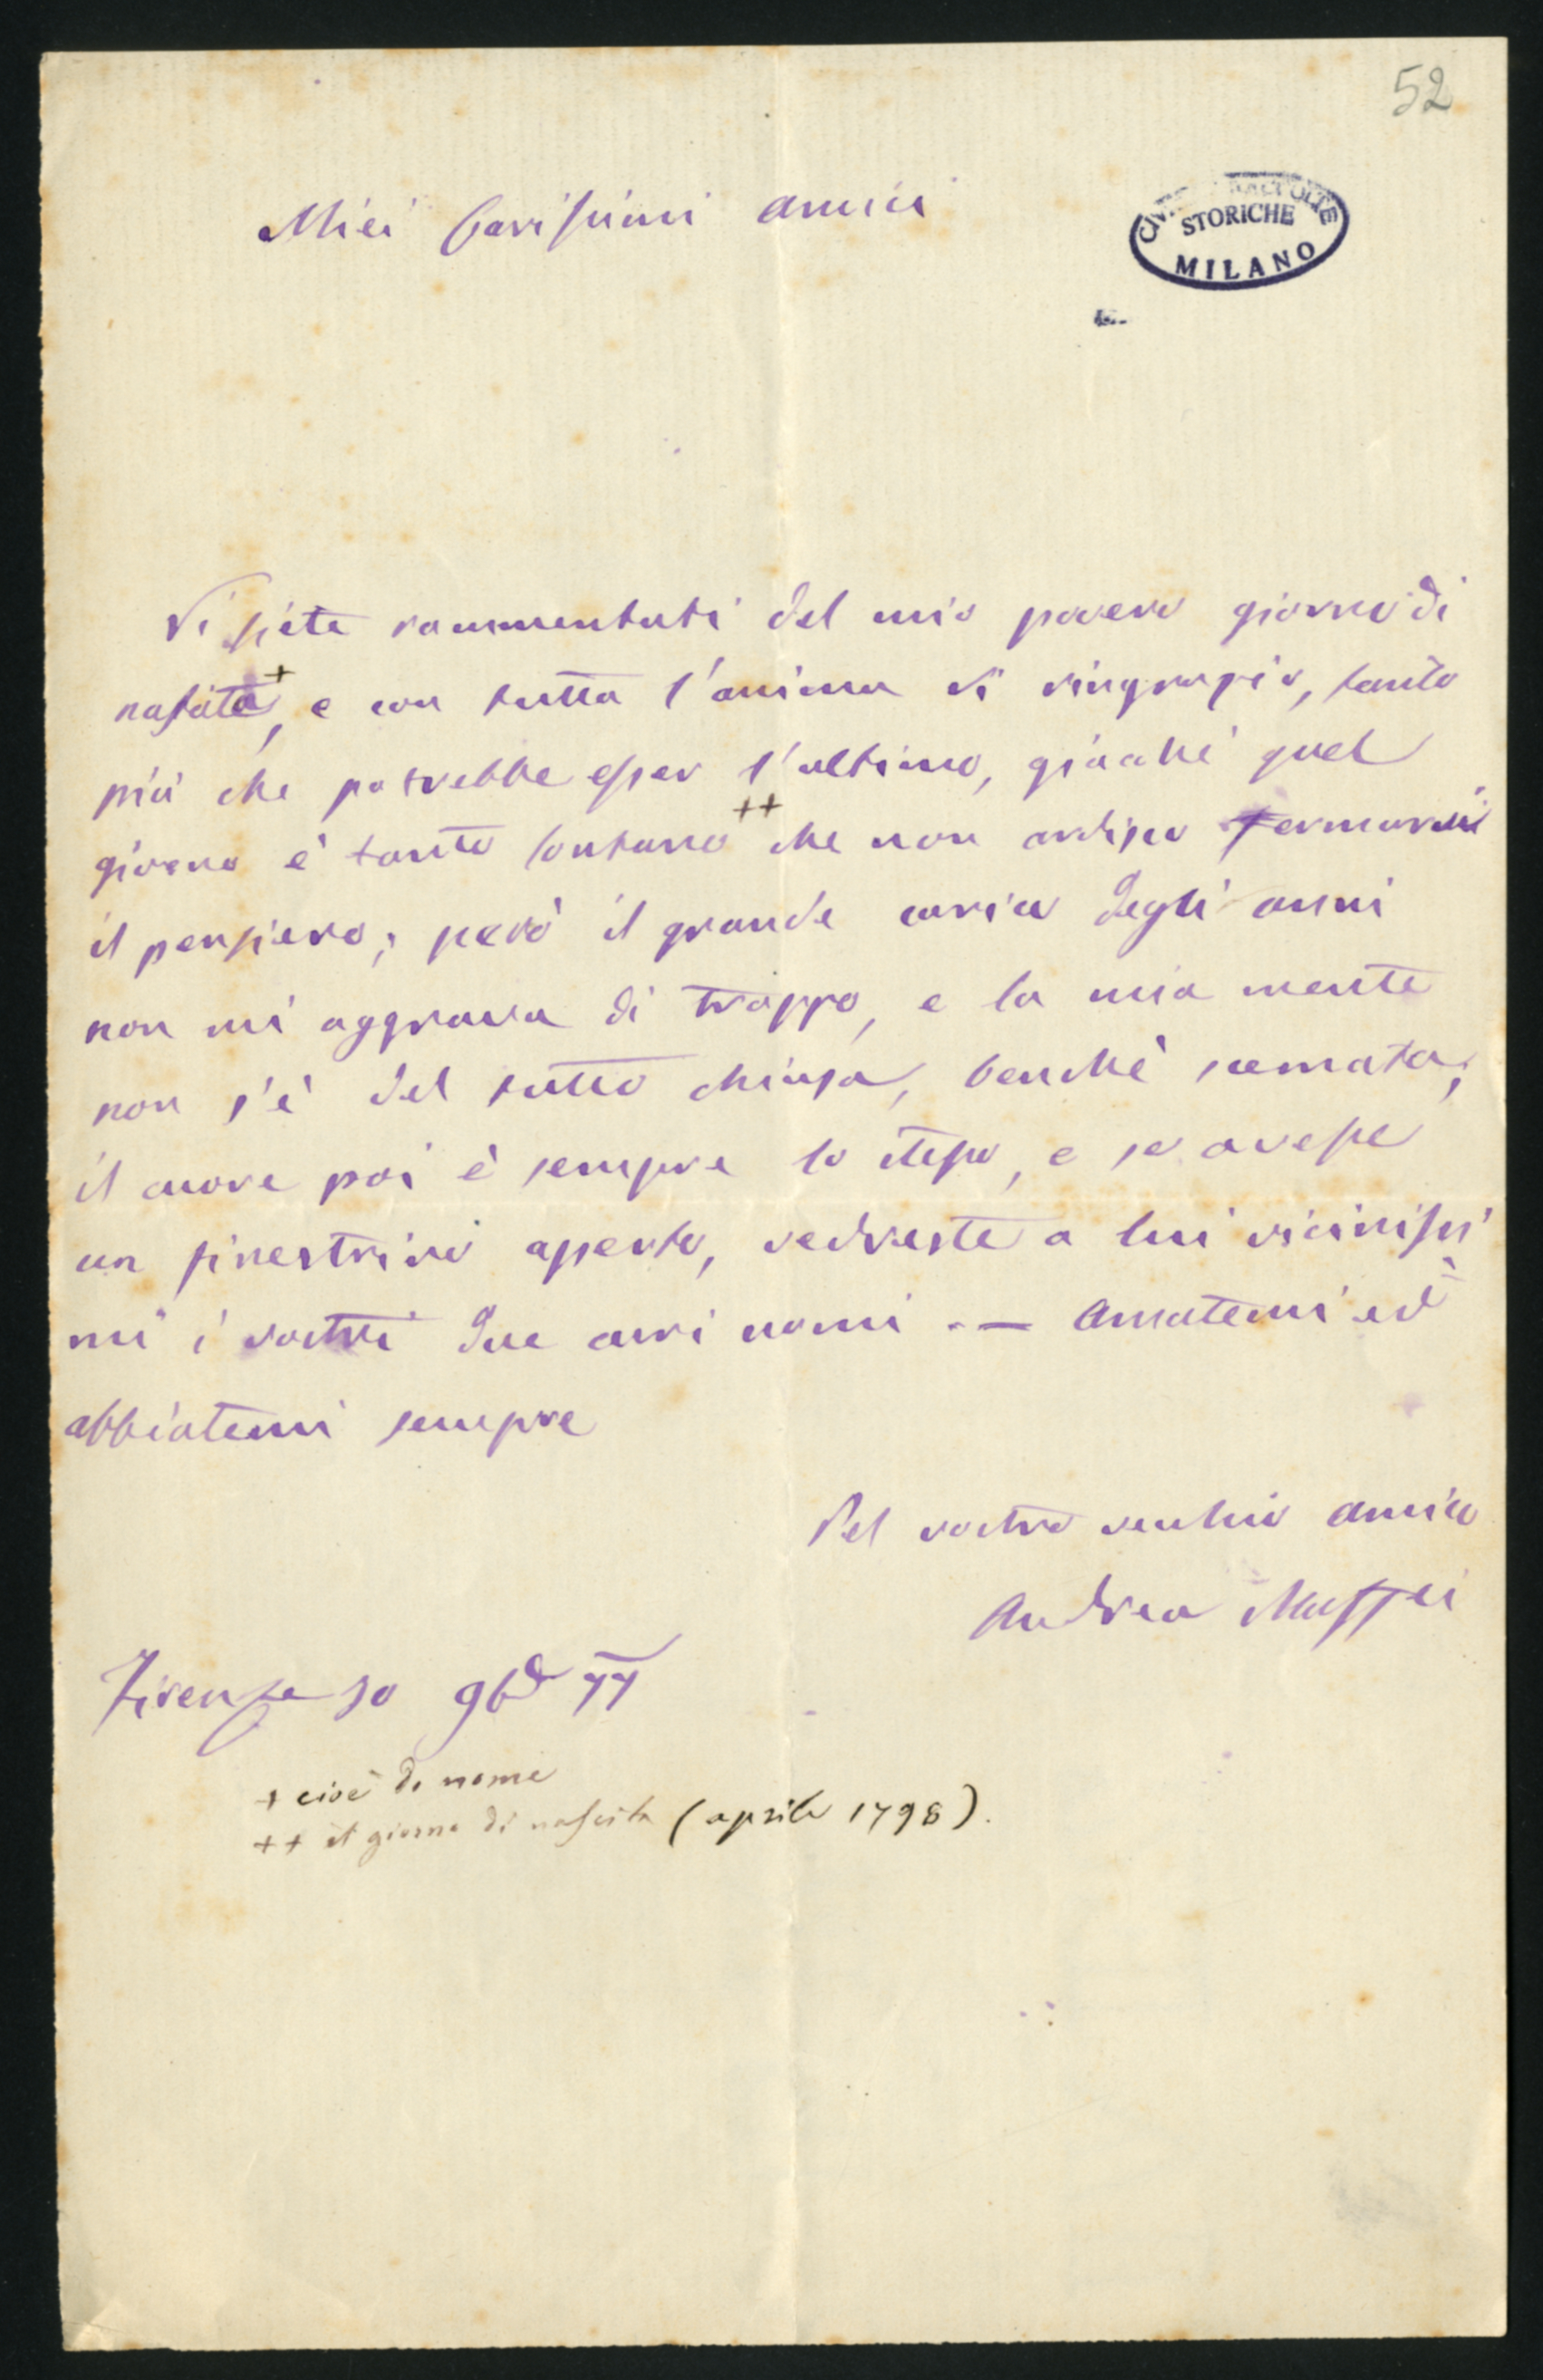 52
Miei Carissimi amici
CIVICHE RACCOLTE
STORICHE
MILANO
Vi siete rammentati del mio povero giorno di
nascita+, e con tutta l'anima vi ringrazio, tanto
più che potrebbe esser l'ultimo, giacché quel
giorno è tanto lontano ++ che non ardisco fermarvi
il pensiero; però il grande carico degli anni
non mi aggrava di troppo, e la mia mente
non s'è del tutto chiusa, benchè scemata;
il cuore poi è sempre lo stesso, e se avesse
un finestrino aperto, vedreste a lui vicinissi
mi i vostri due cari nomi. — Amatemi ed
abbiatemi sempre
Pel vostro vecchio amico
Andrea Maffei
Firenze 30 9bre 77
+ cioè di nome
++ il giorno di nascita (aprile 1798).